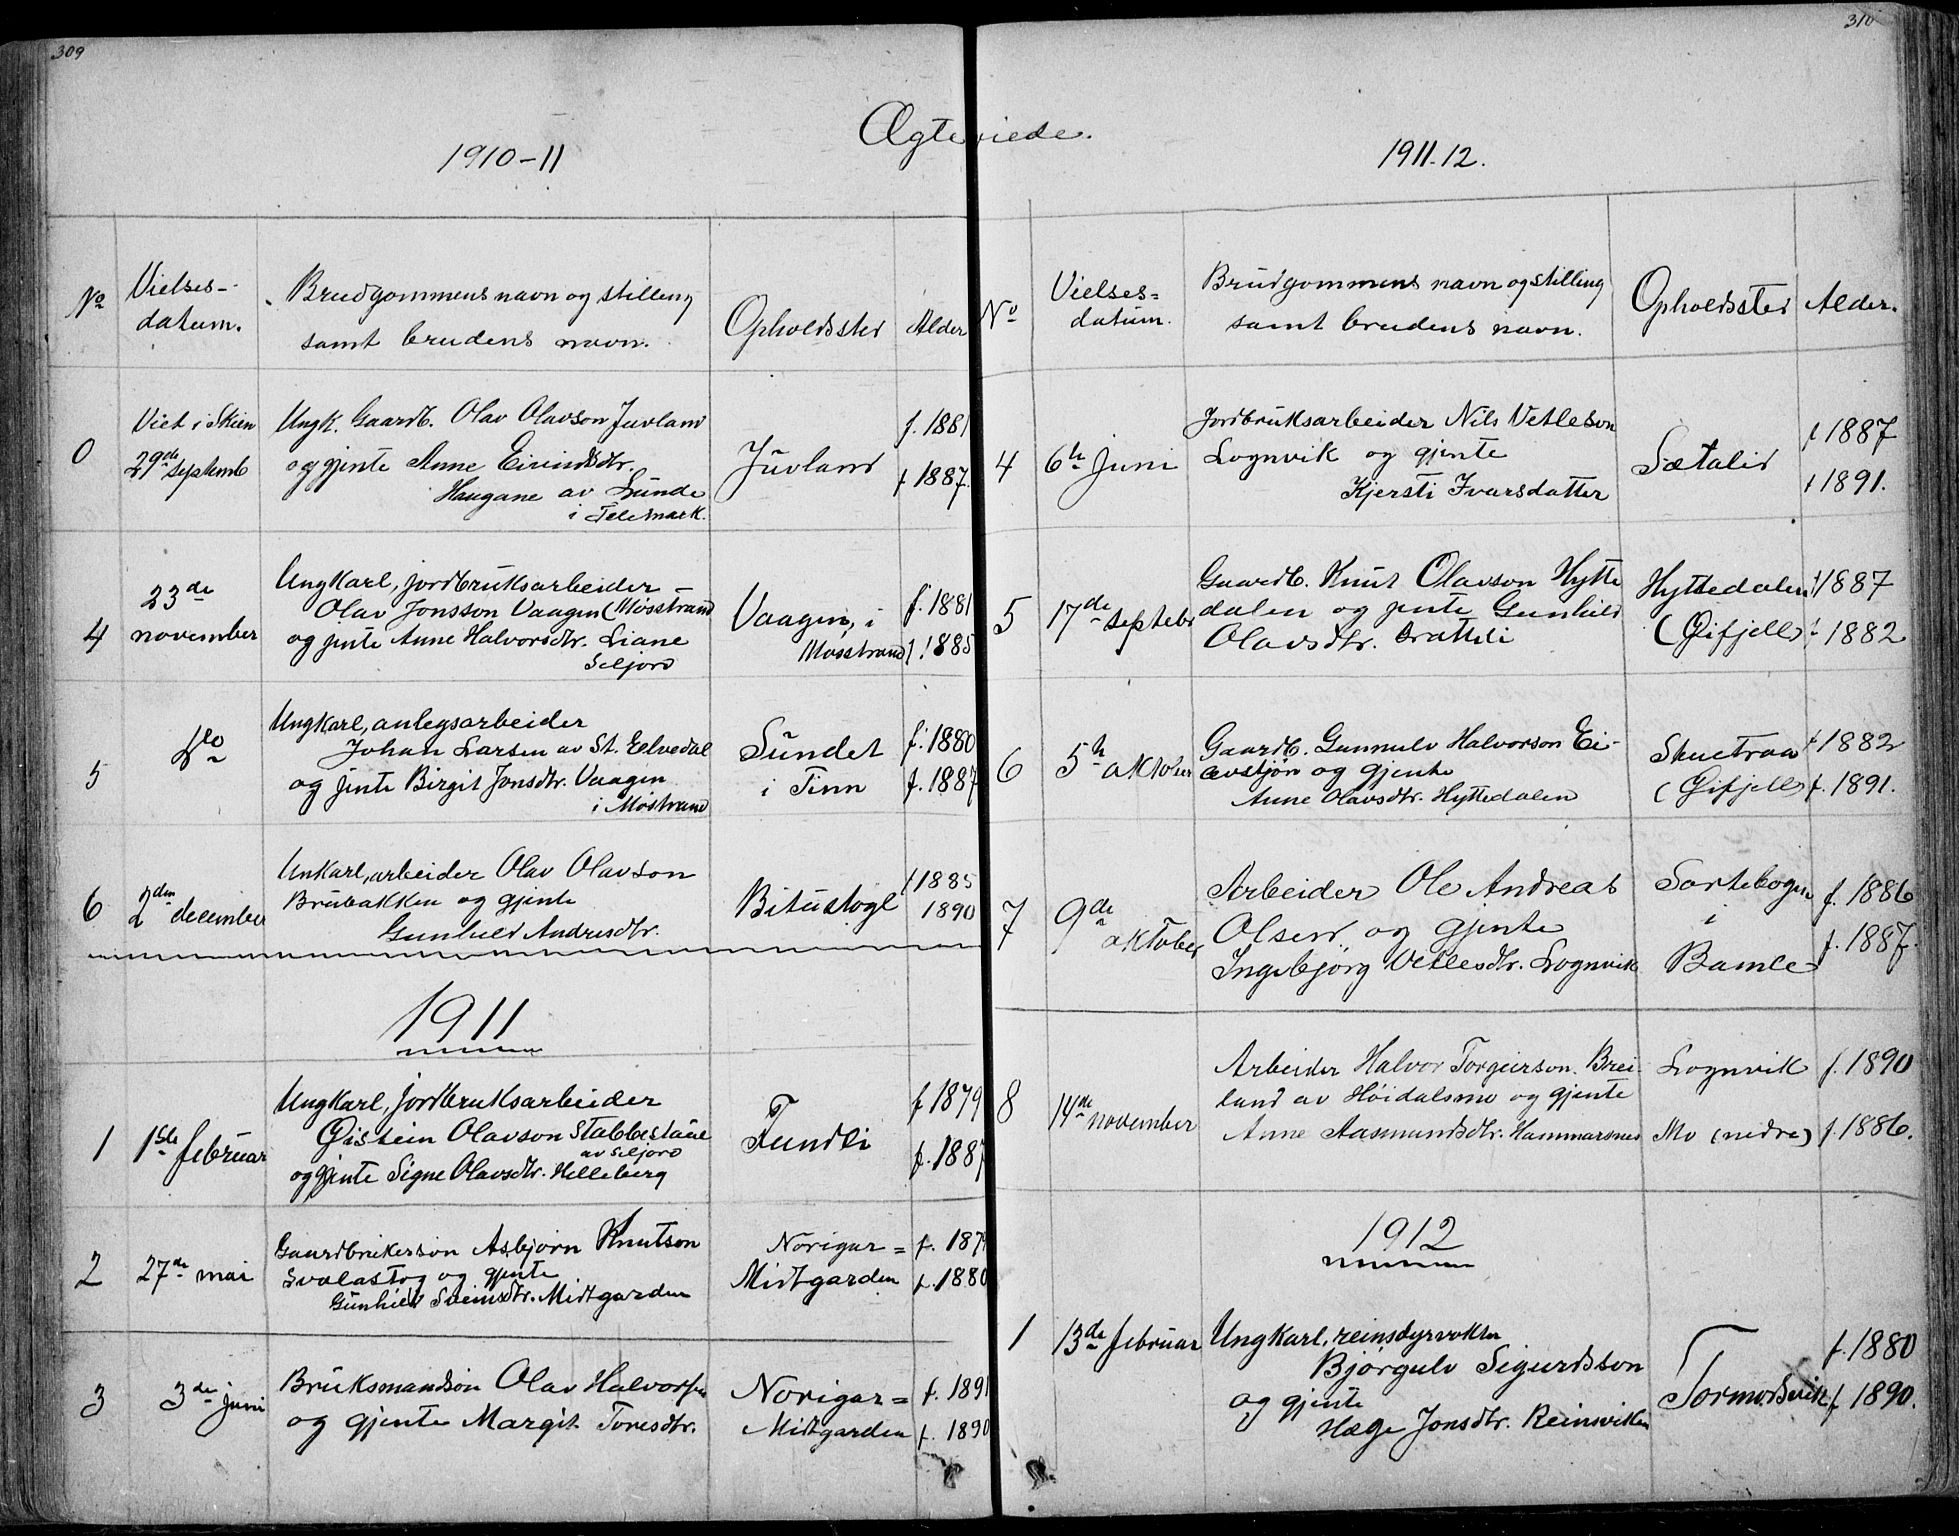 309
Ægteviede.
1910-11
No
Vielses-
datum.
Brudgommens navn og stilling
samt brudens navn.
Opholdssted
Alder
0
Viet i Skien
29de septemb
Ungk. Gaardb. Olav Olavson Juvland
og gjente Anne Eivindsdtr.
Haugane av Lunde
i Telemark.
Juvland
f. 1881
f 1887.
4
23de
november
Ungkarl, jordbruksarbeider
Olav Jonsson Vaagen (Møsstrand
og jente Anne Halvorsdtr. Liane
Seljord
Vaagen, i
Møsstrand
f. 1881
f. 1885
5
do
Ungkarl, anlegsarbeider
Johan Larsen av St. Elvedal
og jente Birgit Jonsdtr. Vaagen
i Møstrand
Sundet
i Tinn
f. 1880
f. 1887
6
2den december
Unkarl, arbeider Olav Olavson
Brubakken og gjente
Gunhild Andresdtr.
Bitustøgl
f 1885
1890
1911
1
1ste februar
Ungkarl, jordbruksarbeider
Øistein Olavson Stabbestaul
av Seljord
og gjente Signe Olavsdtr. Helleberg
Fundli
f 1879
f. 1887
2
27de mai
Gaardbrukersøn Asbjørn Knutson
Svalastog og gjente
Gunhild Sveinsdtr. Midtgarden
Norigar=
Midtgarden
f. 187
f. 1880
3
3de juni
Bruksmandsøn Olav Halvorsen
og gjente Margit Toresdtr.
Norigar=
Midtgarden
f. 1891
f. 1890
310
1911.12.
No
Vielses=
datum.
Brudgommens navn og stilling
samt brudens navn.
Opholdssted
Alder.
4
6te Juni
Jordbruksarbeider Nils Vetleson
Lognvik og gjente
Kjersti Ivarsdatter
Sætalid
f 1887
f 1891.
5
17de septebr
Gaardb. Knut Olavson Hytte
dalen og jente Gunhild
Olavsdtr. Brattli
Hyttedalen
(Øifjell)
f 1887
f 1882
6
5te oktober
Gaardb. Gunnulv Halvorson Ei-
avstjøn og gjente
Anne Olavsdtr. Hyttedalen
Skuetraa
(Øifjell)
f 1882
f. 1891.
7
9de
oktober
Arbeider Ole Andreas
Olsen og gjente
Ingebjørg Vetlesdtr. Lognvik
Sartebogen
i
Bamle
f. 1886
f. 1887.
8
14de november
Arbeider Halvor Torgeirson Brei-
land av Høidalsmo og gjente
Anne Aasmundsdtr. Hammarsnes
Lognvik
Mo (nedre)
f. 1890
f. 1886.
1912
1
13de februar
Ungkarl, reinsdyrvokter
Bjørgulv Sigurdsson
og gjente
Hæge Jonsdtr. Reinsviken
Tormodsvik
f. 1880
f 1890.